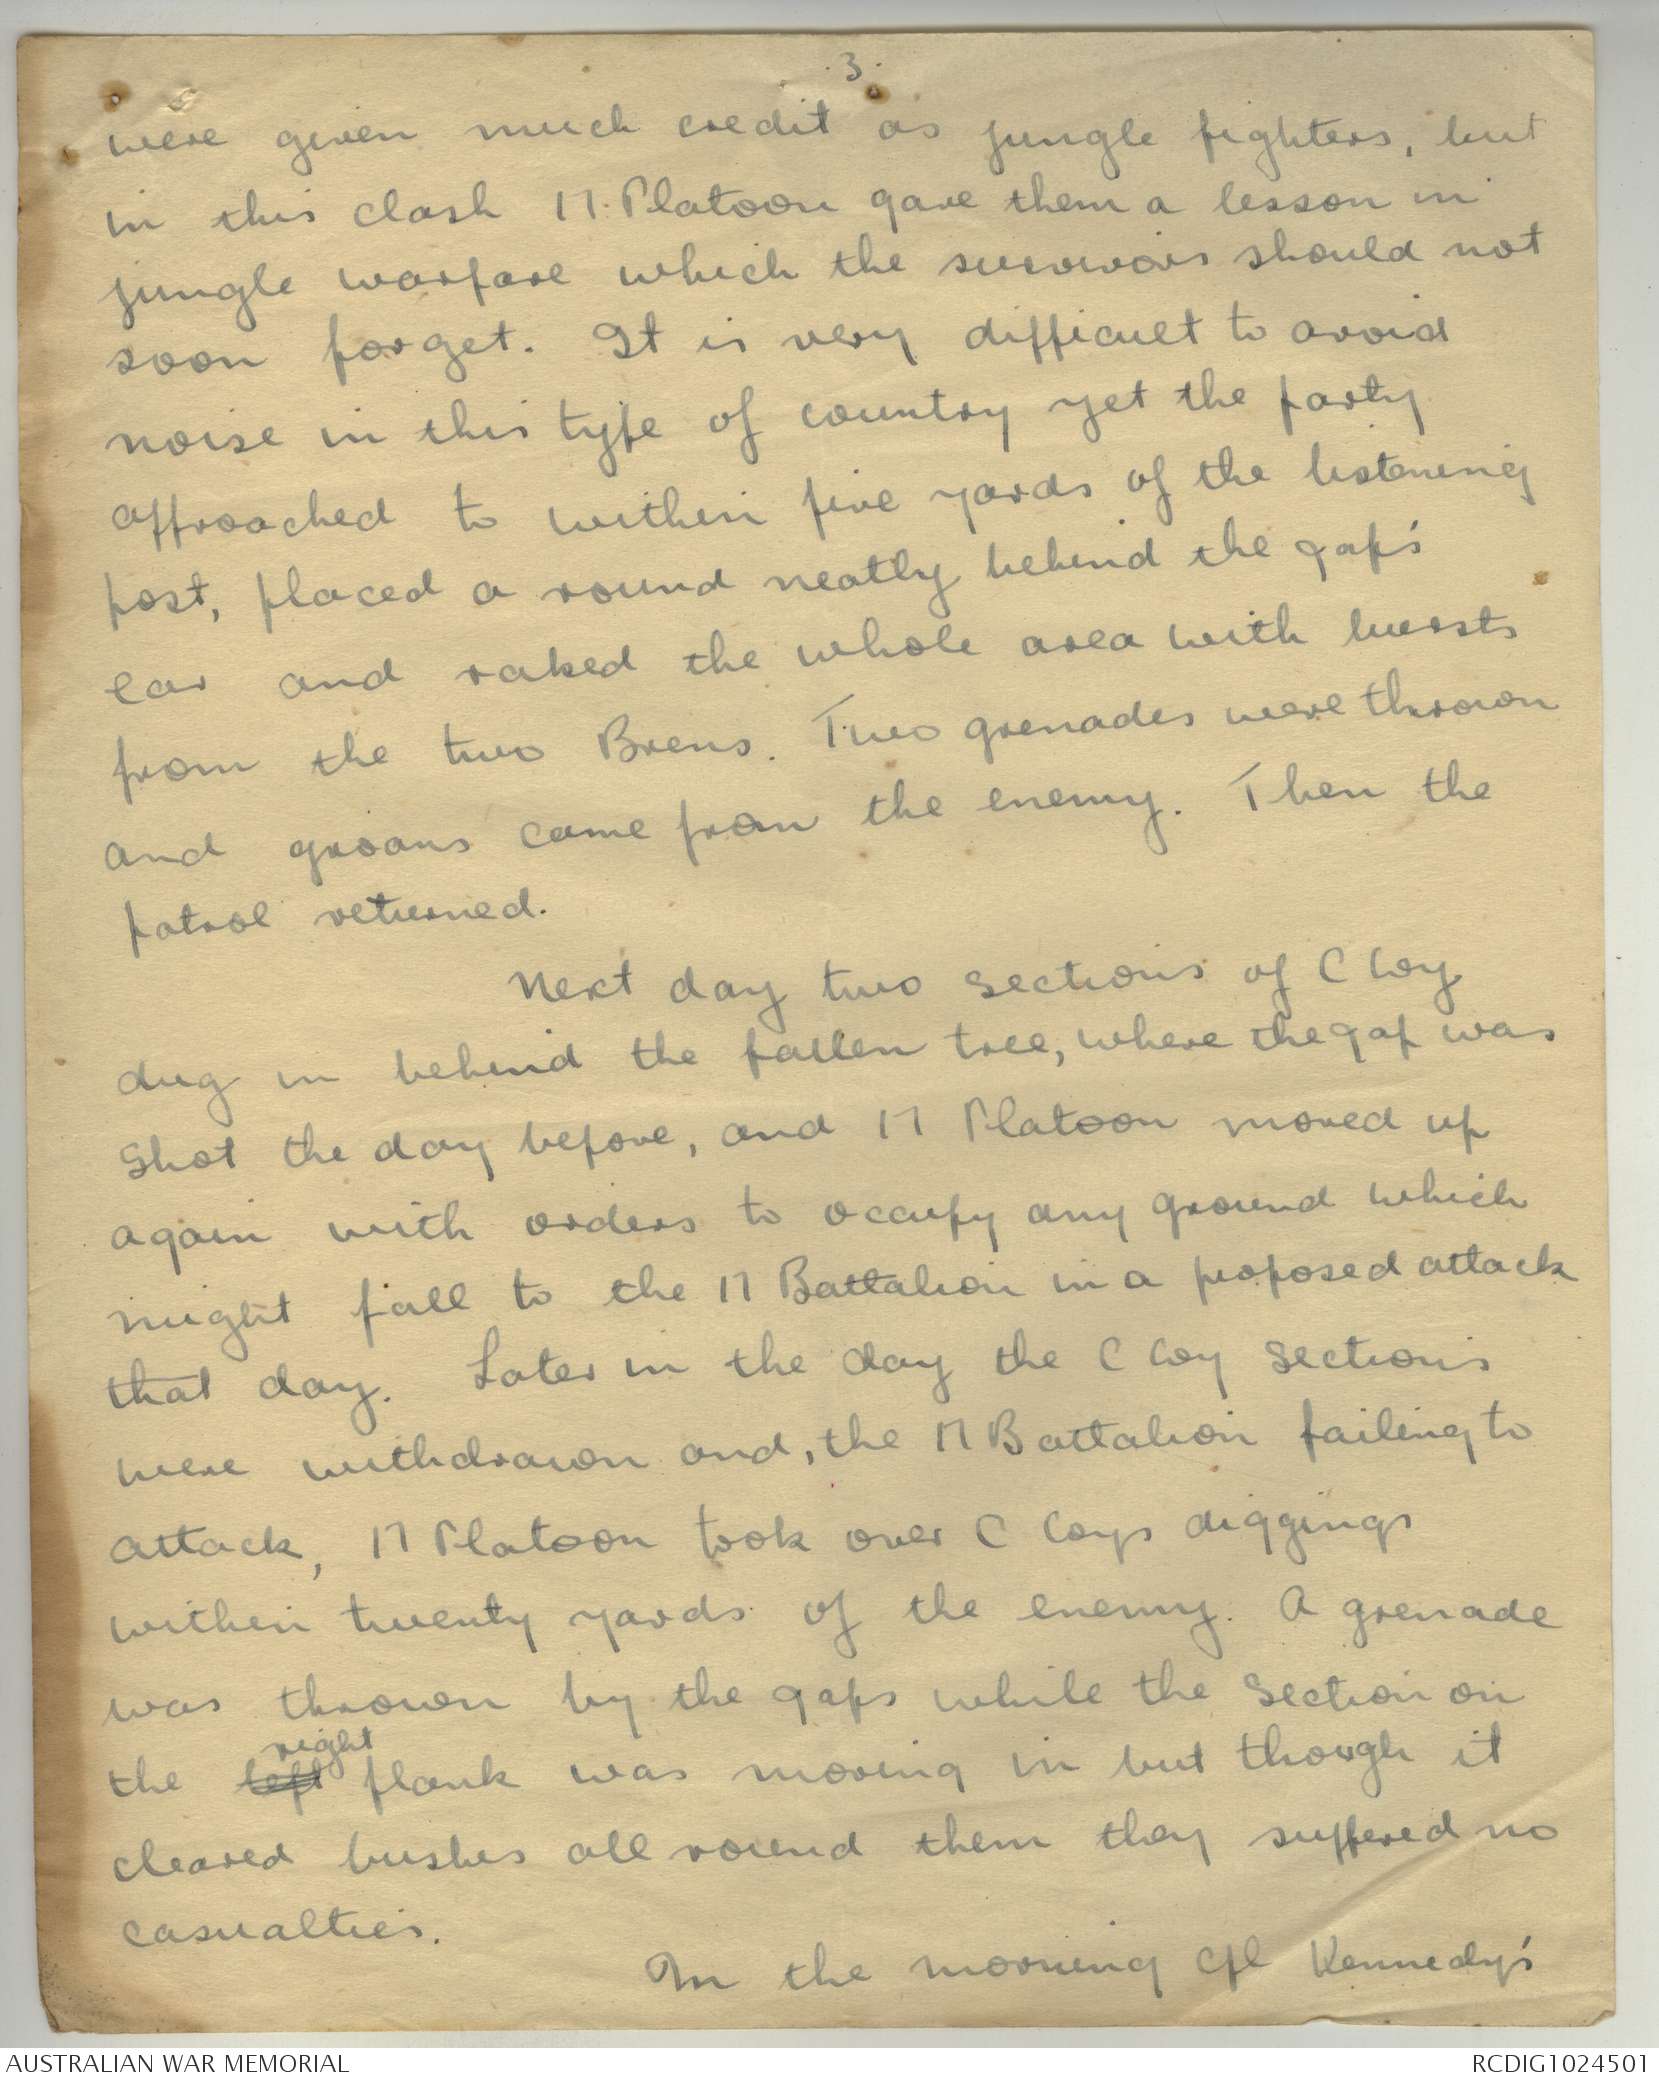 3.
were given much credit as jungle fighters, but
in this clash 17 Platoon gave them a lesson in
jungle warfare which the survivors should not
soon forget. It is very difficult to avoid
noise in this type of country yet the party
approached to within five yards of the listening
post, placed a round neatly behind the jap's
ear and raked the whole area with bursts
from the two Brens. Two grenades were thrown
and groans came from the enemy. Then the
patrol returned.
Next day two sections of C Coy
dug in behind the fallen tree, where the jap was
shot the day before, and 17 Platoon moved up
again with orders to occupy any ground which
might fall to the 17 Battalion in a proposed attack
that day. Later in the day the C Coy sections
were withdrawn and, the 17 Battalion failing to
attack, 17 Platoon took over C Coys diggings
within twenty yards of the enemy. A grenade
was thrown by the japs while the section on
right
the left flank was moving in but though it
cleared bushes all round them they suffered no
casualties.
In the morning Cpl Kennedy's
AUSTRALIAN WAR MEMORIAL
RCDIG1024501